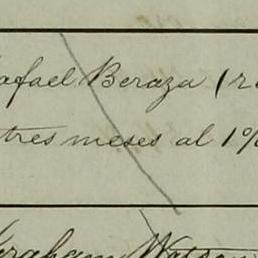 afael Beraza (r
tres meses al 1%
raham Watson